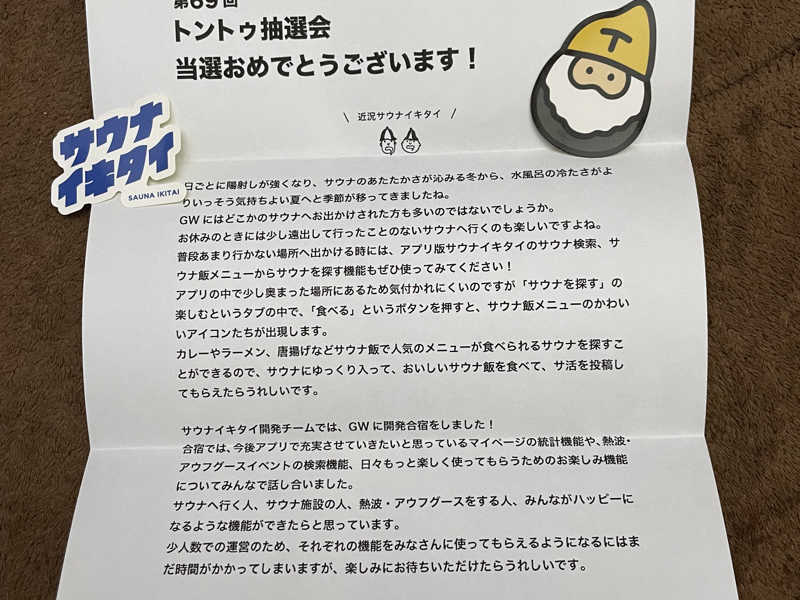 第69回
トントゥ抽選会
当選おめでとうございます！
T
\ 近況サウナイキタイ /
サウナ
イキタイ
SAUNA IKITAI
日ごとに陽射しが強くなり、サウナのあたたかさが沁みる冬から、水風呂の冷たさがよ
りいっそう気持ちよい夏へと季節が移ってきましたね。
GWにはどこかのサウナへお出かけされた方も多いのではないでしょうか。
お休みのときには少し遠出して行ったことのないサウナへ行くのも楽しいですよね。
普段あまり行かない場所へ出かける時には、アプリ版サウナイキタイのサウナ検索、サ
ウナ飯メニューからサウナを探す機能もぜひ使ってみてください！
アプリの中で少し奥まった場所にあるため気付かれにくいのですが「サウナを探す」の
楽しむというタブの中で、「食べる」というボタンを押すと、サウナ飯メニューのかわい
いアイコンたちが出現します。
カレーやラーメン、唐揚げなどサウナ飯で人気のメニューが食べられるサウナを探すこ
とができるので、サウナにゆっくり入って、おいしいサウナ飯を食べて、サ活を投稿し
てもらえたらうれしいです。
サウナイキタイ開発チームでは、GWに開発合宿をしました！
合宿では、今後アプリで充実させていきたいと思っているマイページの統計機能や、熱波・
アウフグースイベントの検索機能、日々もっと楽しく使ってもらうためのお楽しみ機能
についてみんなで話し合いました。
サウナへ行く人、サウナ施設の人、熱波・アウフグースをする人、みんながハッピーに
なるような機能ができたらと思っています。
少人数での運営のため、それぞれの機能をみなさんに使ってもらえるようになるにはま
だ時間がかかってしまいますが、楽しみにお待ちいただけたらうれしいです。